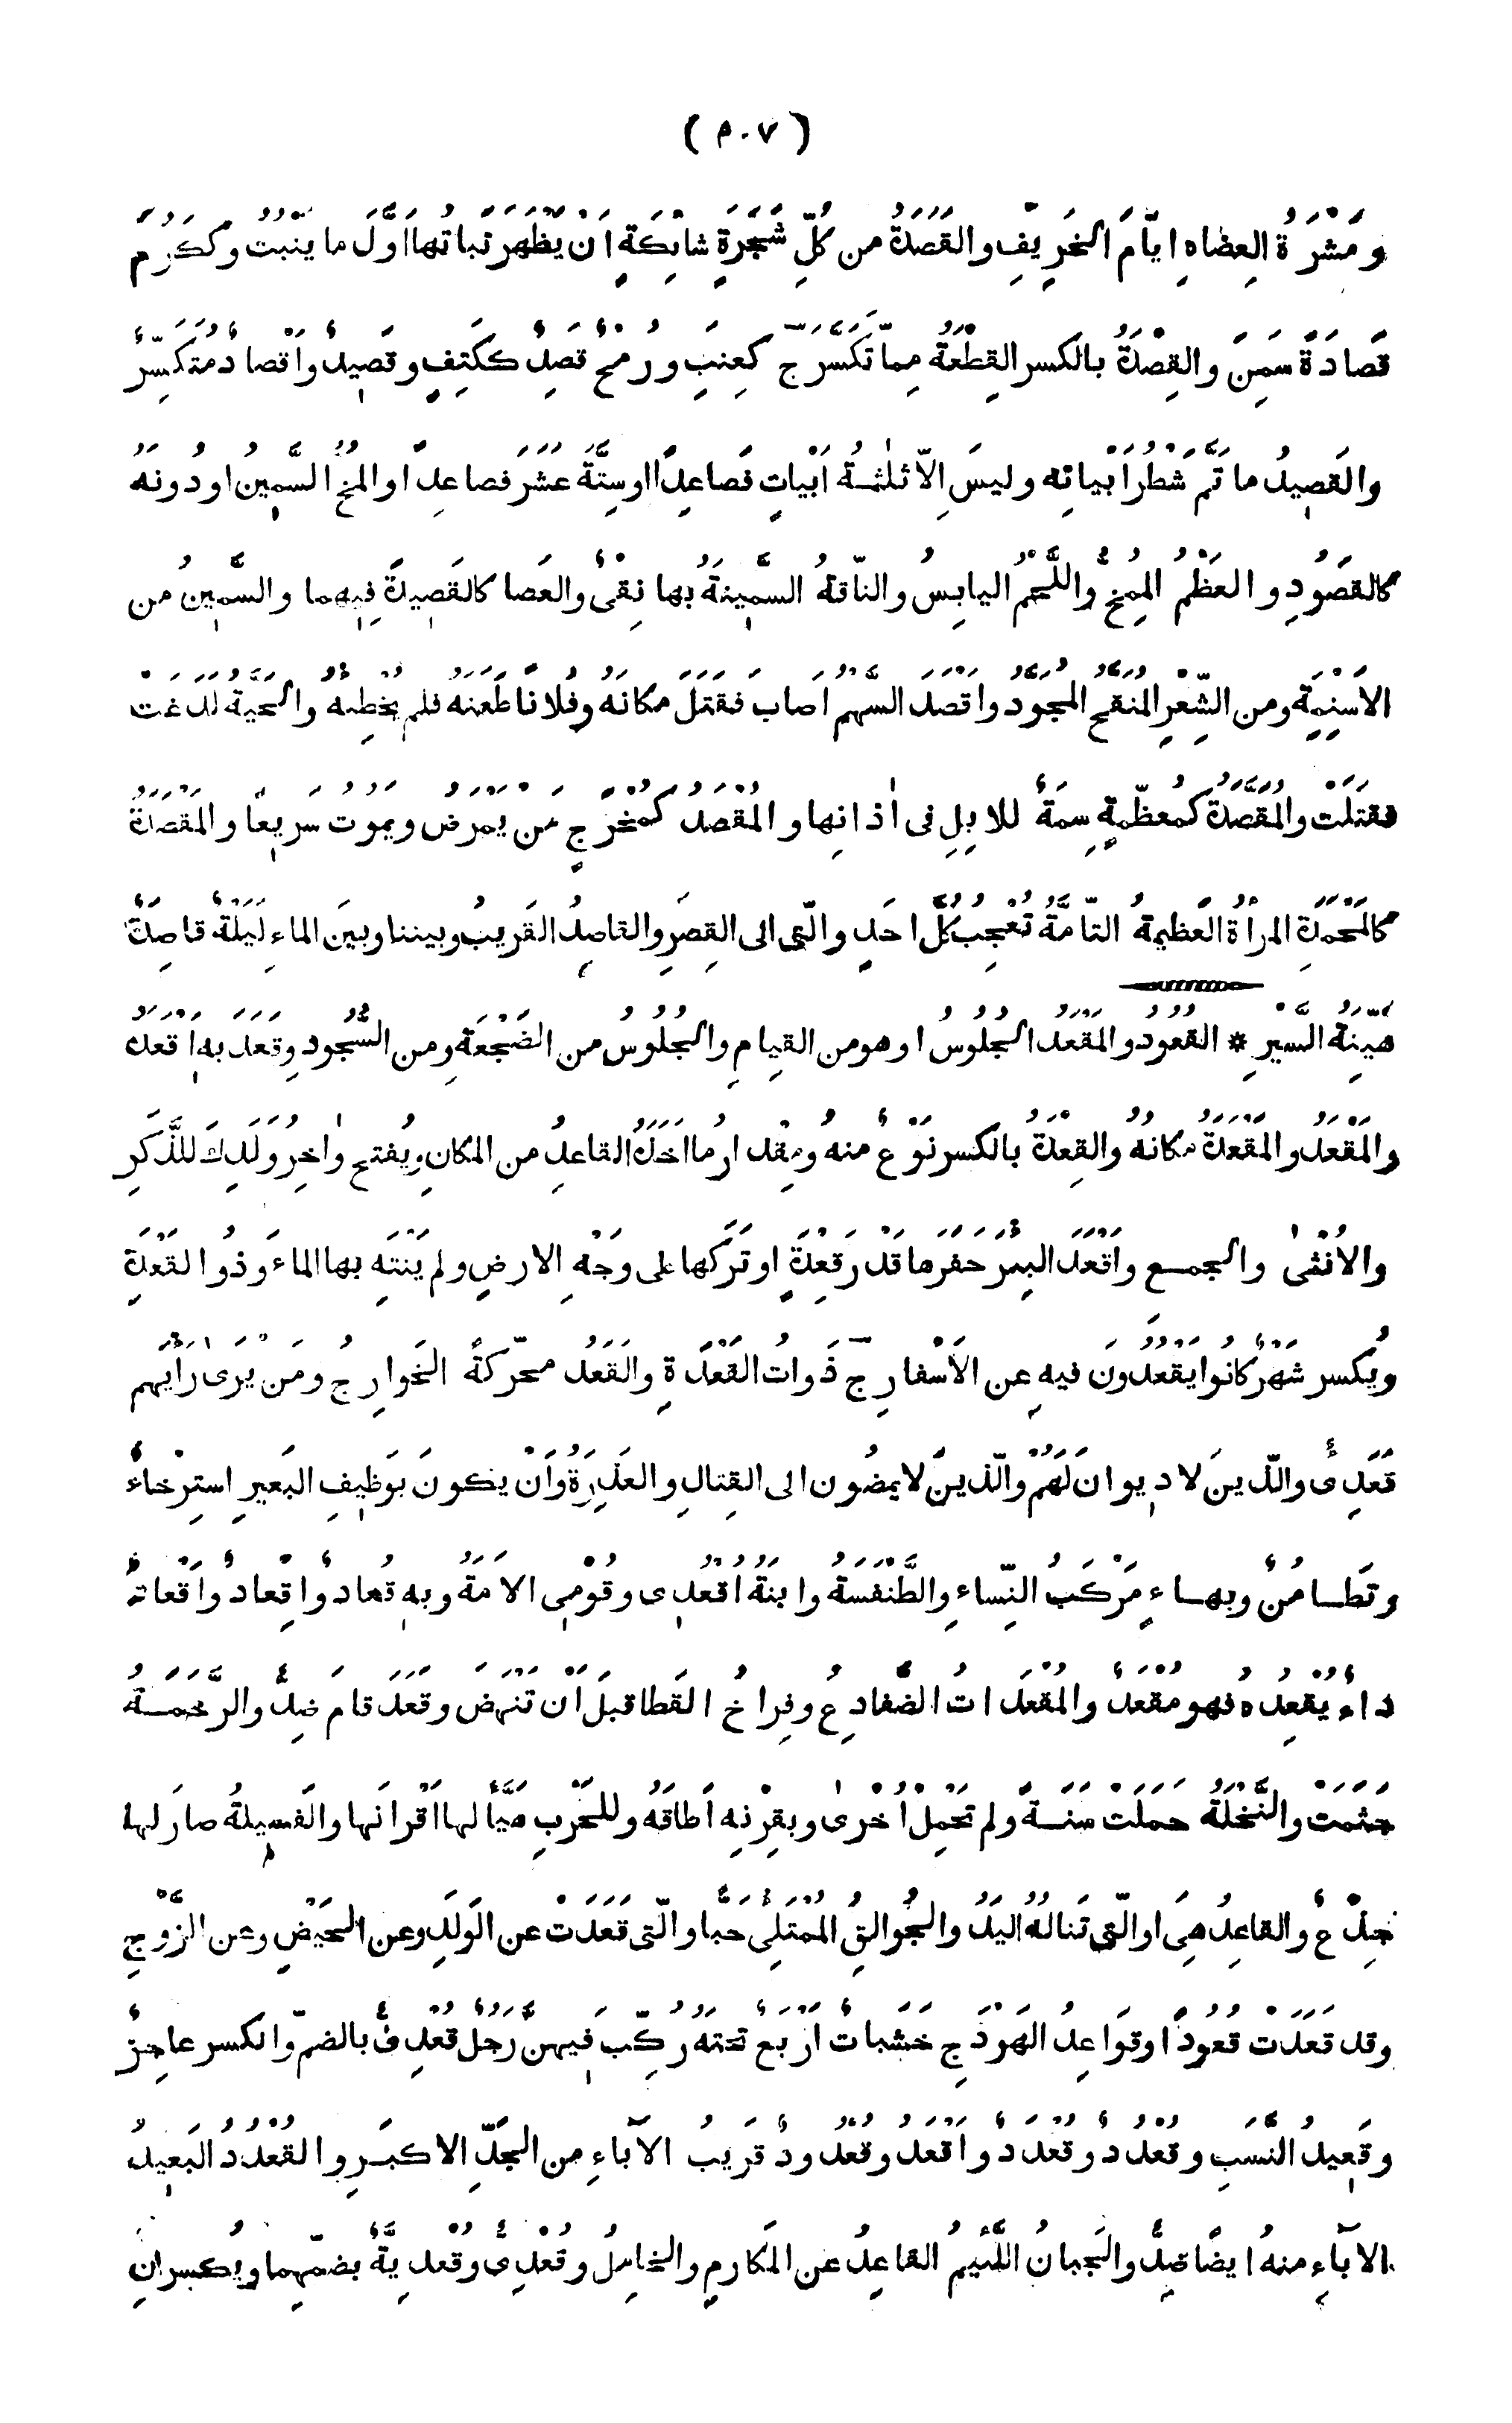 ( ٧٠م )
ومَشْرَةُ العِضاهِ ايّامَ الخَريفِ والقَصَدَةُ من كُلِّ شَجَرَةٍ شائِكَةٍ اَنْ يَظْهَرَ نَباتُها اوَّلَ ما يَنْبُتُ وكَكَرُمَ
قَصادَةً سَمِنَ والقِصْدَةُ بالكسر القِطْعَةُ مِمّا تَكَسَّرَ ج كعِنَبٍ ورُمْحٌ قَصِدٌ ككَتِفٍ وقَصيدٌ واَقْصادٌ مُتَكَسِّرٌ
والقَصيدُ ما تَمَّ شَطْرُ اَبْياتِه وليسَ اِلّا ثلٰثةُ اَبْياتٍ فَصاعِدًا اوسِتَّةَ عَشَرَ فصاعِدًا والمُخُّ السَّمينُ اودُونَهُ
كالقَصُودِ والعَظْمُ المُمِخُّ واللَّحْمُ اليابِسُ والنّاقَةُ السَّمينَةُ بها نِقْىٌ والعَصا كالقَصيدَةِ فيهما والسَّمينُ من
الاَسْنِمَةِ ومن الشِّعْرِ المنقَّحُ المُجَوَّدُ واَقْصَدَ السَّهْمُ اَصابَ فقَتَلَ مَكانَهُ وفُلانًا طَعَنَهُ فلم يُخْطِئْهُ والحَيَّةُ لَدَغَتْ
فقَتَلَتْ والمُقَصَّدَةُ كمُعَظَّمَةٍ سِمَةٌ للاِبِلِ فى اٰذانِها والمُقْصَدُ كمُخْرَجٍ مَن يَمْرَضُ ويموتُ سريعًا والمَقْصَدَةُ
كالمَحْمَدَةِ المرأةُ العَظيمةُ التامَّةُ تُعْجِبُ كُلَّ احَدٍ والّتى الى القِصَرِ والقاصِدُ القَريبُ وبيننا وبينَ الماءِ لَيْلَةٌ قاصِدَةٌ
هَيِّنَةُ السَّيْرِ * القُعودُ والمَقْعَدُ الجُلوسُ اوهومن القِيامِ والجُلُوسُ من الضَّجْعَةِ ومن السُّجُودِ وقَعَدَ به اَقْعَدَهُ
والمَقْعَدُ والمَقْعَدَةُ مكانُهُ والقِعْدَةُ بالكسر نَوْعٌ منهُ ومِقْدارُ ما اَخَذَهُ القاعِدُ من المكانِ ويُفتح واٰخِرُ وَلَدِكَ للذَّكَرِ
والاُنْثٰى والجمع واَقْعَدَ البِئرَ حَفَرَها قَدْرَ قِعْدَةٍ او تَرَكَها على وَجْهِ الارضِ ولم يَنْتَهِ بها الماءَ وذُو القَعْدَةِ
ويُكسر شَهْرٌ كانُوا يَقْعُدُونَ فيهِ عن الاَسْفارِ ج ذَواتُ القَعْدَةِ والقَعَدُ محرّكةً الخَوارِجُ ومَنْ يَرٰى رَأْيَهم
قَعَدِىٌّ والّذينَ لا ديوانَ لَهُمْ والّذينَ لا يمضُون الى القِتالِ والعَذِرَةُ واَنْ يكونَ بوَظيفِ البَعيرِ استِرْخاءٌ
وتَطامُنٌ وبهاءٍ مَرْكَبُ النِّساءِ والطَّنْفَسَةُ وابنةُ اقْعُدِى وقُومِى الاَمَةُ وبهِ قُعادٌ واِقْعادٌ واَقْعاد
داءٌ يُقْعِدُهُ فهو مُقْعَدٌ والمُقْعَداتُ الضَّفادِعُ وفِراخُ القَطا قبلَ ان تَنْهَضَ وقَعَدَ قامَ ضِدٌّ والرَّخَمَةُ
جَثَمَتْ والنَّخْلَةُ حَمَلَتْ سَنَةً ولم تَحْمِلْ اُخْرٰى وبقِرْنِهِ اَطاقَهُ وللحَرْبِ هَيَّأَ لها اَقْرانَها والفَسيلةُ صارَ لها
جِذْعٌ والقاعِدُ هِىَ او الّتى تَنالُهُ اليَدُ والجُوالِقُ المُمْتَلِئُ حَبًّا والّتى قَعَدَتْ عن الوَلَدِ وعن الحَيْضِ وعن الزَّوْجِ
وقد قَعَدَتْ قُعُودًا وقَواعِدُ الهَوْدَجِ خَشَباتٌ اَرْبَعٌ تَحْتَهُ رُكِّبَ فيهنَّ رَجُلٌ قُعْدِىٌّ بالضمّ والكسر عاجِزٌ
وقَعيدُ النَّسَبِ وقُعْدُدٌ وقُعْدَدٌ واَقْعَدُ وقُعْدُودٌ قَريبُ الآباءِ من الجَدِّ الاكبَرِ والقُعْدُدُ البَعيدُ
الآباءِ منهُ ايضًا ضِدٌّ والجَبانُ اللَّئيمُ القاعِدُ عن المَكارِمِ والخامِلُ وقُعْدِىٌّ وقُعْدِيَّةٌ بضمّهما ويُكسرانِ